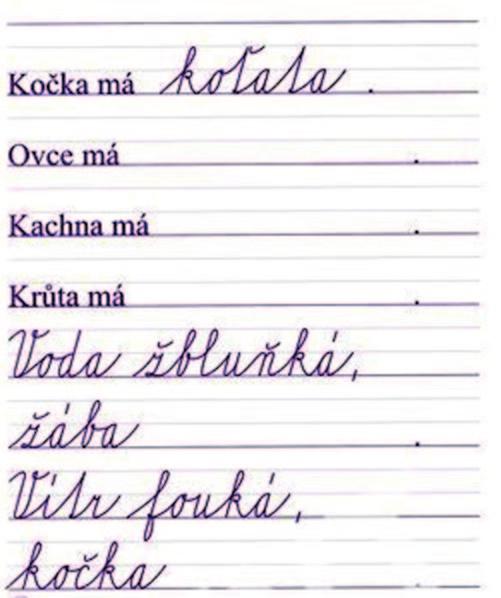 Kočka má koťata .
Ovce má .
Kachna má .
Krůta má .
Voda žbluňká,
žába .
Vítr fouká,
kočka .